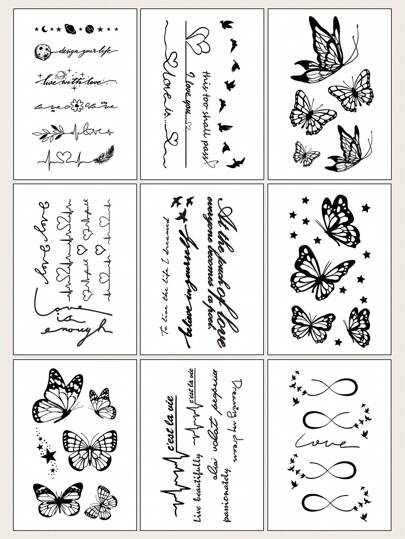 design your life
live with love
love
love is
I love you
this too shall pass
love love
Love
is
enough
To live the life I dreamed
believe in yourself
At the touch of love
everyone becomes a poet
c'est la vie
live beautifully
c'est la vie
alis volat propriis
passionately
love